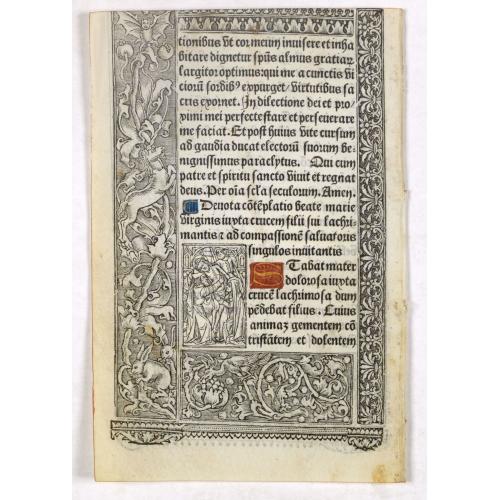 tionibus vt cor meum inuisere et inha
bitare dignetur spũs almus gratiaꝝ
largitor optimus: qui me a cunctis vi
ciorũ sordibꝰ expurget / virtutibus sa
cris exornet. In dilectione dei et pro
ximi mei perfecte stare et perseuerare
me faciat. Et post huius vite cursum
ad gaudia ducat electorũ suorum be-
nignissimus paraclytus. Qui cum
patre et spiritu sancto viuit et regnat
deus. Per oĩa scĺa seculorum. Amen.
Deuota cõtẽplatio beate marie
virginis iuxta crucem filii sui lachri-
mantis ⁊ ad compassionẽ saluatoris
singulos inuitantis
STabat mater
dolorosa iuxta
crucẽ lachrimosa dum
pẽdebat filius. Cuius
animaꝫ gementem cõ
tristãtem et dolentem